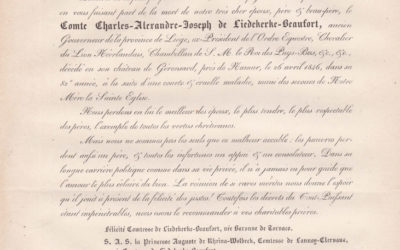 en vous faisant part de la mort de notre très cher époux, père & beau-père, le
Comte Charles-Alexandre-Joseph de Liedekerke-Beaufort, ancien
Gouverneur de la province de Liège, ex-Président de l'Ordre Equestre, Chevalier
du Lion Néerlandais, Chambellan de S. M. le Roi des Pays-Bas, &c., &c.,
décédé en son château de Géronsard, près de Namur, le 26 avril 1846, dans sa
82e année, à la suite d'une courte & cruelle maladie, muni des secours de Notre
Mère la Sainte Eglise.
Nous perdons en lui le meilleur des époux, le plus tendre, le plus respectable
des pères, l'exemple de toutes les vertus chrétiennes.
Mais nous ne sommes pas les seuls que ce malheur accable: les pauvres per-
dent enfin un père, & toutes les infortunes un appui & un consolateur. Dans sa
longue carrière politique comme dans sa vie privée, il n'a jamais eu pour guide que
l'amour le plus éclairé du bien. La réunion de si rares mérites nous donne l'espoir
qu'il jouit à présent de la félicité des justes! Toutefois les décrets du Tout-Puissant
étant impénétrables, nous osons le recommander à vos charitables prières.
Félicité Comtesse de Liedekerke-Beaufort, née Baronne de
S. A. S. la Princesse Auguste de Comtesse de Lannoy-Clervaux,